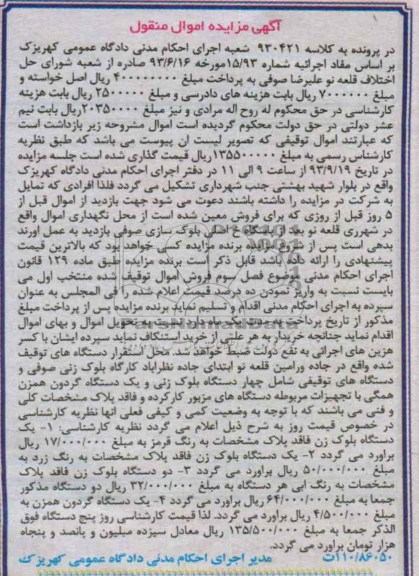 آگهی مزایده اموال منقول
در پرونده به کلاسه ۹۳۰۴۲۱ شعبه اجرای احکام مدنی دادگاه عمومی کهریزک
بر اساس مفاد اجرائیه شماره ۱۵/۹۳مورخه ۹۳/۶/۱۶ صادره از شعبه شورای حل
اختلاف قلعه نو علیرضا صوفی به پرداخت مبلغ ۴۰۰۰۰۰۰۰۰ ریال اصل خواسته و
مبلغ ۷۰۰۰۰۰۰ ریال بابت هزینه های دادرسی و مبلغ ۲۵۰۰۰۰۰ ریال بابت هزینه
کارشناسی در حق محکوم له روح اله مرادی و نیز مبلغ ۲۰۳۵۰۰۰۰ریال بابت نیم
عشر دولتی در حق دولت محکوم گردیده است اموال مشروحه زیر بازداشت است
که عبارتند اموال توقیفی که تصویر لیست ان پیوست می باشد که طبق نظریه
کارشناس رسمی به مبلغ ۱۳۵۵۰۰۰۰۰ریال قیمت گذاری شده است جلسه مزایده
در تاریخ ۹۳/۹/۱۹ از ساعت ۹ الی ۱۱ در دفتر اجرای احکام مدنی دادگاه کهریزک
واقع در بلوار شهید بهشتی جنب شهرداری تشکیل می گردد فلذا افرادی که تمایل
به شرکت در مزایده را داشته باشند دعوت می شود جهت بازدید از اموال قبل از
۵ روز قبل از روزی که برای فروش معین شده است از محل نگهداری اموال واقع
در شهرری قلعه نو بعد از باسگاه خ اصلی بلوک سازی صوفی بازدید به عمل اورند
بدهی است پس از شروع مزایده برنده مزایده کسی خواهد بود که بالاترین قیمت
پیشنهادی را ارائه داده باشد قابل ذکر است برنده مزایده طبق ماده ۱۲۹ قانون
اجرای احکام مدنی موضوع فصل سوم فروش اموال توقیف شده منتخب اول می
بایست نسبت به واریز نمودن ده درصد قیمت اعلام شده را فی المجلس به عنوان
سپرده به اجرای احکام مدنی اقدام و تسلیم نماید برنده مزایده پس از پرداخت مبلغ
مذکور از تاریخ پرداخت به مدت یک ماه دارد نسبت به تحویل اموال و بهای اموال
اقدام نماید چنانچه خریدار به هر علتی از خرید استنکاف نماید سپرده ایشان با کسر
هزین های اجرائی به نفع دولت ضبط خواهد شد. محل استقرار دستگاه های توقیف
شده واقع در جاده ورامین قلعه نو ابتدای جاده نظراباد کارگاه بلوک زنی صوفی و
دستگاه های توقیفی شامل چهار دستگاه بلوک زنی و یک دستگاه گردون همزن
همگی با تجهیزات مربوطه دستگاه های مزبور کارکرده و فاقد پلاک مشخصات کلی
و فنی می باشند که با توجه به وضعیت کمی و کیفی فعلی انها نظریه کارشناسی
در خصوص قیمت روز به شرح ذیل اعلام می گردد نظریه کارشناسی: ۱- یک
دستگاه بلوک زن فاقد پلاک مشخصات به رنگ قرمز به مبلغ ۱۷/۰۰۰/۰۰۰ ریال
براورد می گردد ۲- یک دستگاه بلوک زن فاقد پلاک مشخصات به رنگ زرد به
مبلغ ۵۰/۰۰۰/۰۰۰ ریال براورد می گردد ۳- دو دستگاه بلوک زن فاقد پلاک
مشخصات به رنگ ابی هر دستگاه به مبلغ ۳۲/۰۰۰/۰۰۰ ریال دو دستگاه مذکور
جمعا به مبلغ ۶۴/۰۰۰/۰۰۰ ریال براورد می گردد ۴- یک دستگاه گردون همزن به
مبلغ ۴/۵۰۰/۰۰۰ ریال براورد می گردد. لذا قیمت کارشناسی روز پنج دستگاه فوق
الذکر جمعا به مبلغ ۱۳۵/۵۰۰/۰۰۰ ریال معادل سیزده میلیون و پانصد و پنجاه
هزار تومان براورد می گردد.
۱۱۰/۸۶۰۵۰ت مدیر اجرای احکام مدنی دادگاه عمومی کهریزک